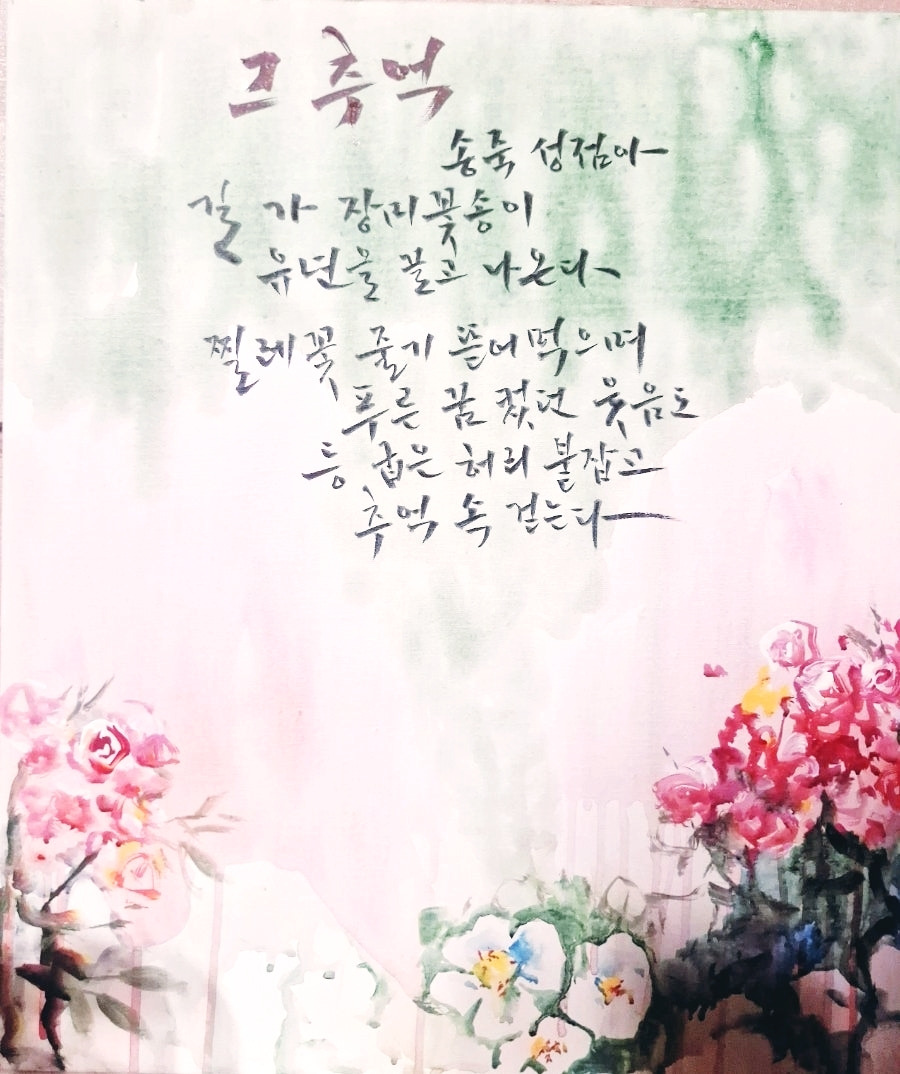 그 추억
송죽 성점아
길 가 장미꽃송이
유년을 끌고 나온다
찔레꽃 줄기 뜯어먹으며
푸른 꿈 컸던 웃음도
등 굽은 허리 붙잡고
추억 속 걷는다